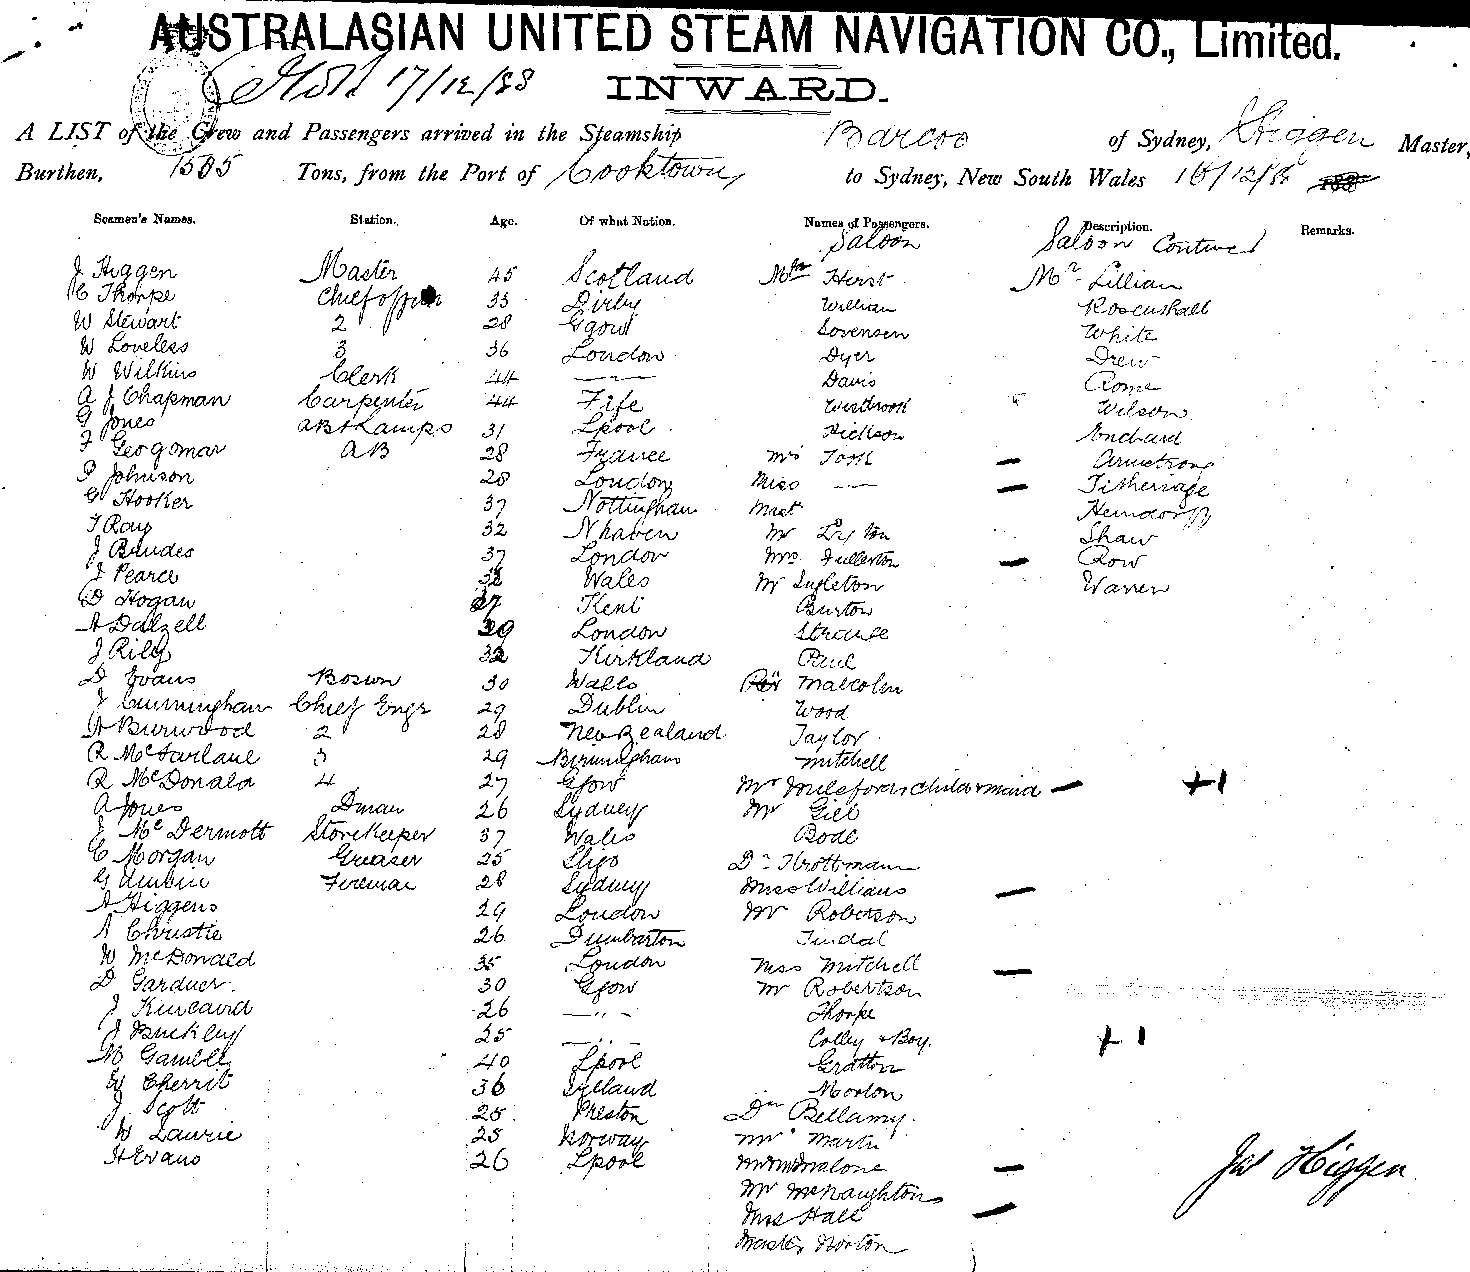 AUSTRALASIAN UNITED STEAM NAVIGATION CO., Limited.
17/12/88 INWARD.
A LIST of the Crew and Passengers arrived in the Steamship Barcoo of Sydney, J Higgen Master,
Burthen, 1505 Tons, from the Port of Cooktown to Sydney, New South Wales 16/12/88
Seamen's Names. Station. Age. Of what Nation. Names of Passengers. Description. Remarks.
Saloon Saloon Continued
J Higgen Master 45 Scotland Mr Hirst Mr Lillian
C Thorpe Chief officer 33 Dirby William Rosenshall
W Stewart 2 28 Ggow Sorensen White
W Loveless 3 36 London Dyer Drew
W Wilkins Clerk 44 Davis Rome
A J Chapman Carpenter 44 Fife Westbrook Wilson
G Jones AB & Lamps 31 Lpool Hickson
F Geogomar AB 28 France Mrs Armstrong
P Johnson 28 London Miss Titheridge
G Hooker 37 Nottingham Mast
T Ray 32 Nhaven Mr Shaw
J Baudes 37 London Mrs Fullerton Row
J Pearce 32 Wales Mr Singleton Warren
D Hogan 37 Kent Burton
A Dalzell 39 London Strause
J Rily 32 Kirkland Paul
D Evans Bosun 30 Walls Malcolm
J Cunningham Chief Engr 29 Dublin Wood
A Burwood 2 28 New Zealand Taylor
R McFarlane 3 29 Birmingham Mitchell
R McDonald 4 27 Ggow Mrs Milsford & child & maid +1
A Jones Dman 26 Sydney Mr Gill
J McDermott Storekeeper 37 Wales Bode
C Morgan Greaser 25 Sligo Dr Throttmann
G Fireman 28 Sydney Miss Williams
A Higgens 29 London Mr Roberson
A Christie 26 Dumbarton Tindal
W McDonald 35 London Miss Mitchell
D Garduer 30 Ggow Mr Robertson
J Kincaird 26 Thorpe
J Buckley 25 Colley & Boy +1
M Gamble 40 Lpool Gratton
W Cherrit 36 Morton
J Scott 25 Preston Dr Bellamy
W Laurie 25 Norway Mr Martin
H Evans 26 Lpool Malone
Jas Higgen
Mr McNaughton
Miss Hall
Master Norton